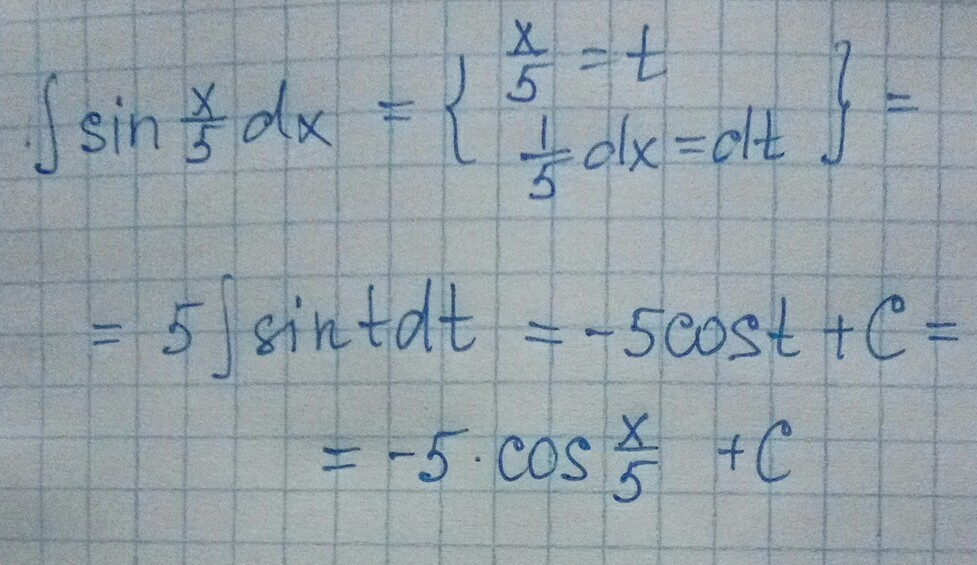 ∫ sin x/5 dx = { x/5 = t
1/5 dx = dt } =
= 5∫ sin t dt = -5 cos t + C =
= -5 · cos x/5 + C